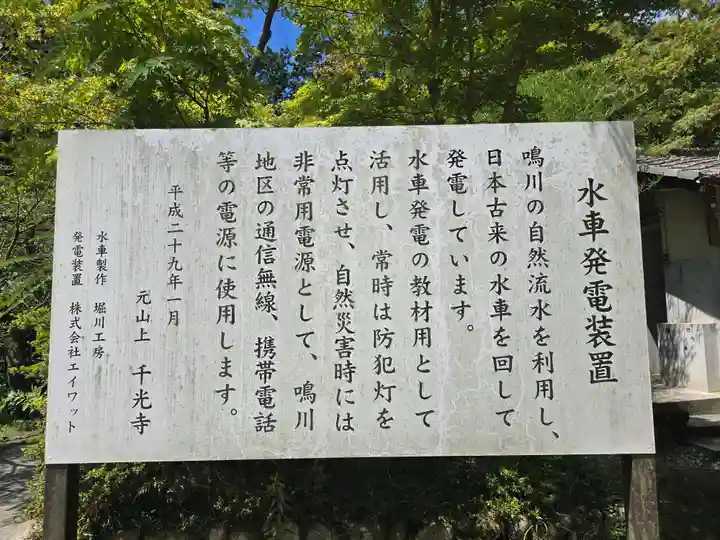 水車発電装置
鳴川の自然流水を利用し、
日本古来の水車を回して
発電しています。
水車発電の教材用として
活用し、常時は防犯灯を
点灯させ、自然災害時には
非常用電源として、鳴川
地区の通信無線、携帯電話
等の電源に使用します。
平成二十九年一月
元山上 千光寺
水車製作 堀川工房
発電装置 株式会社エイワット